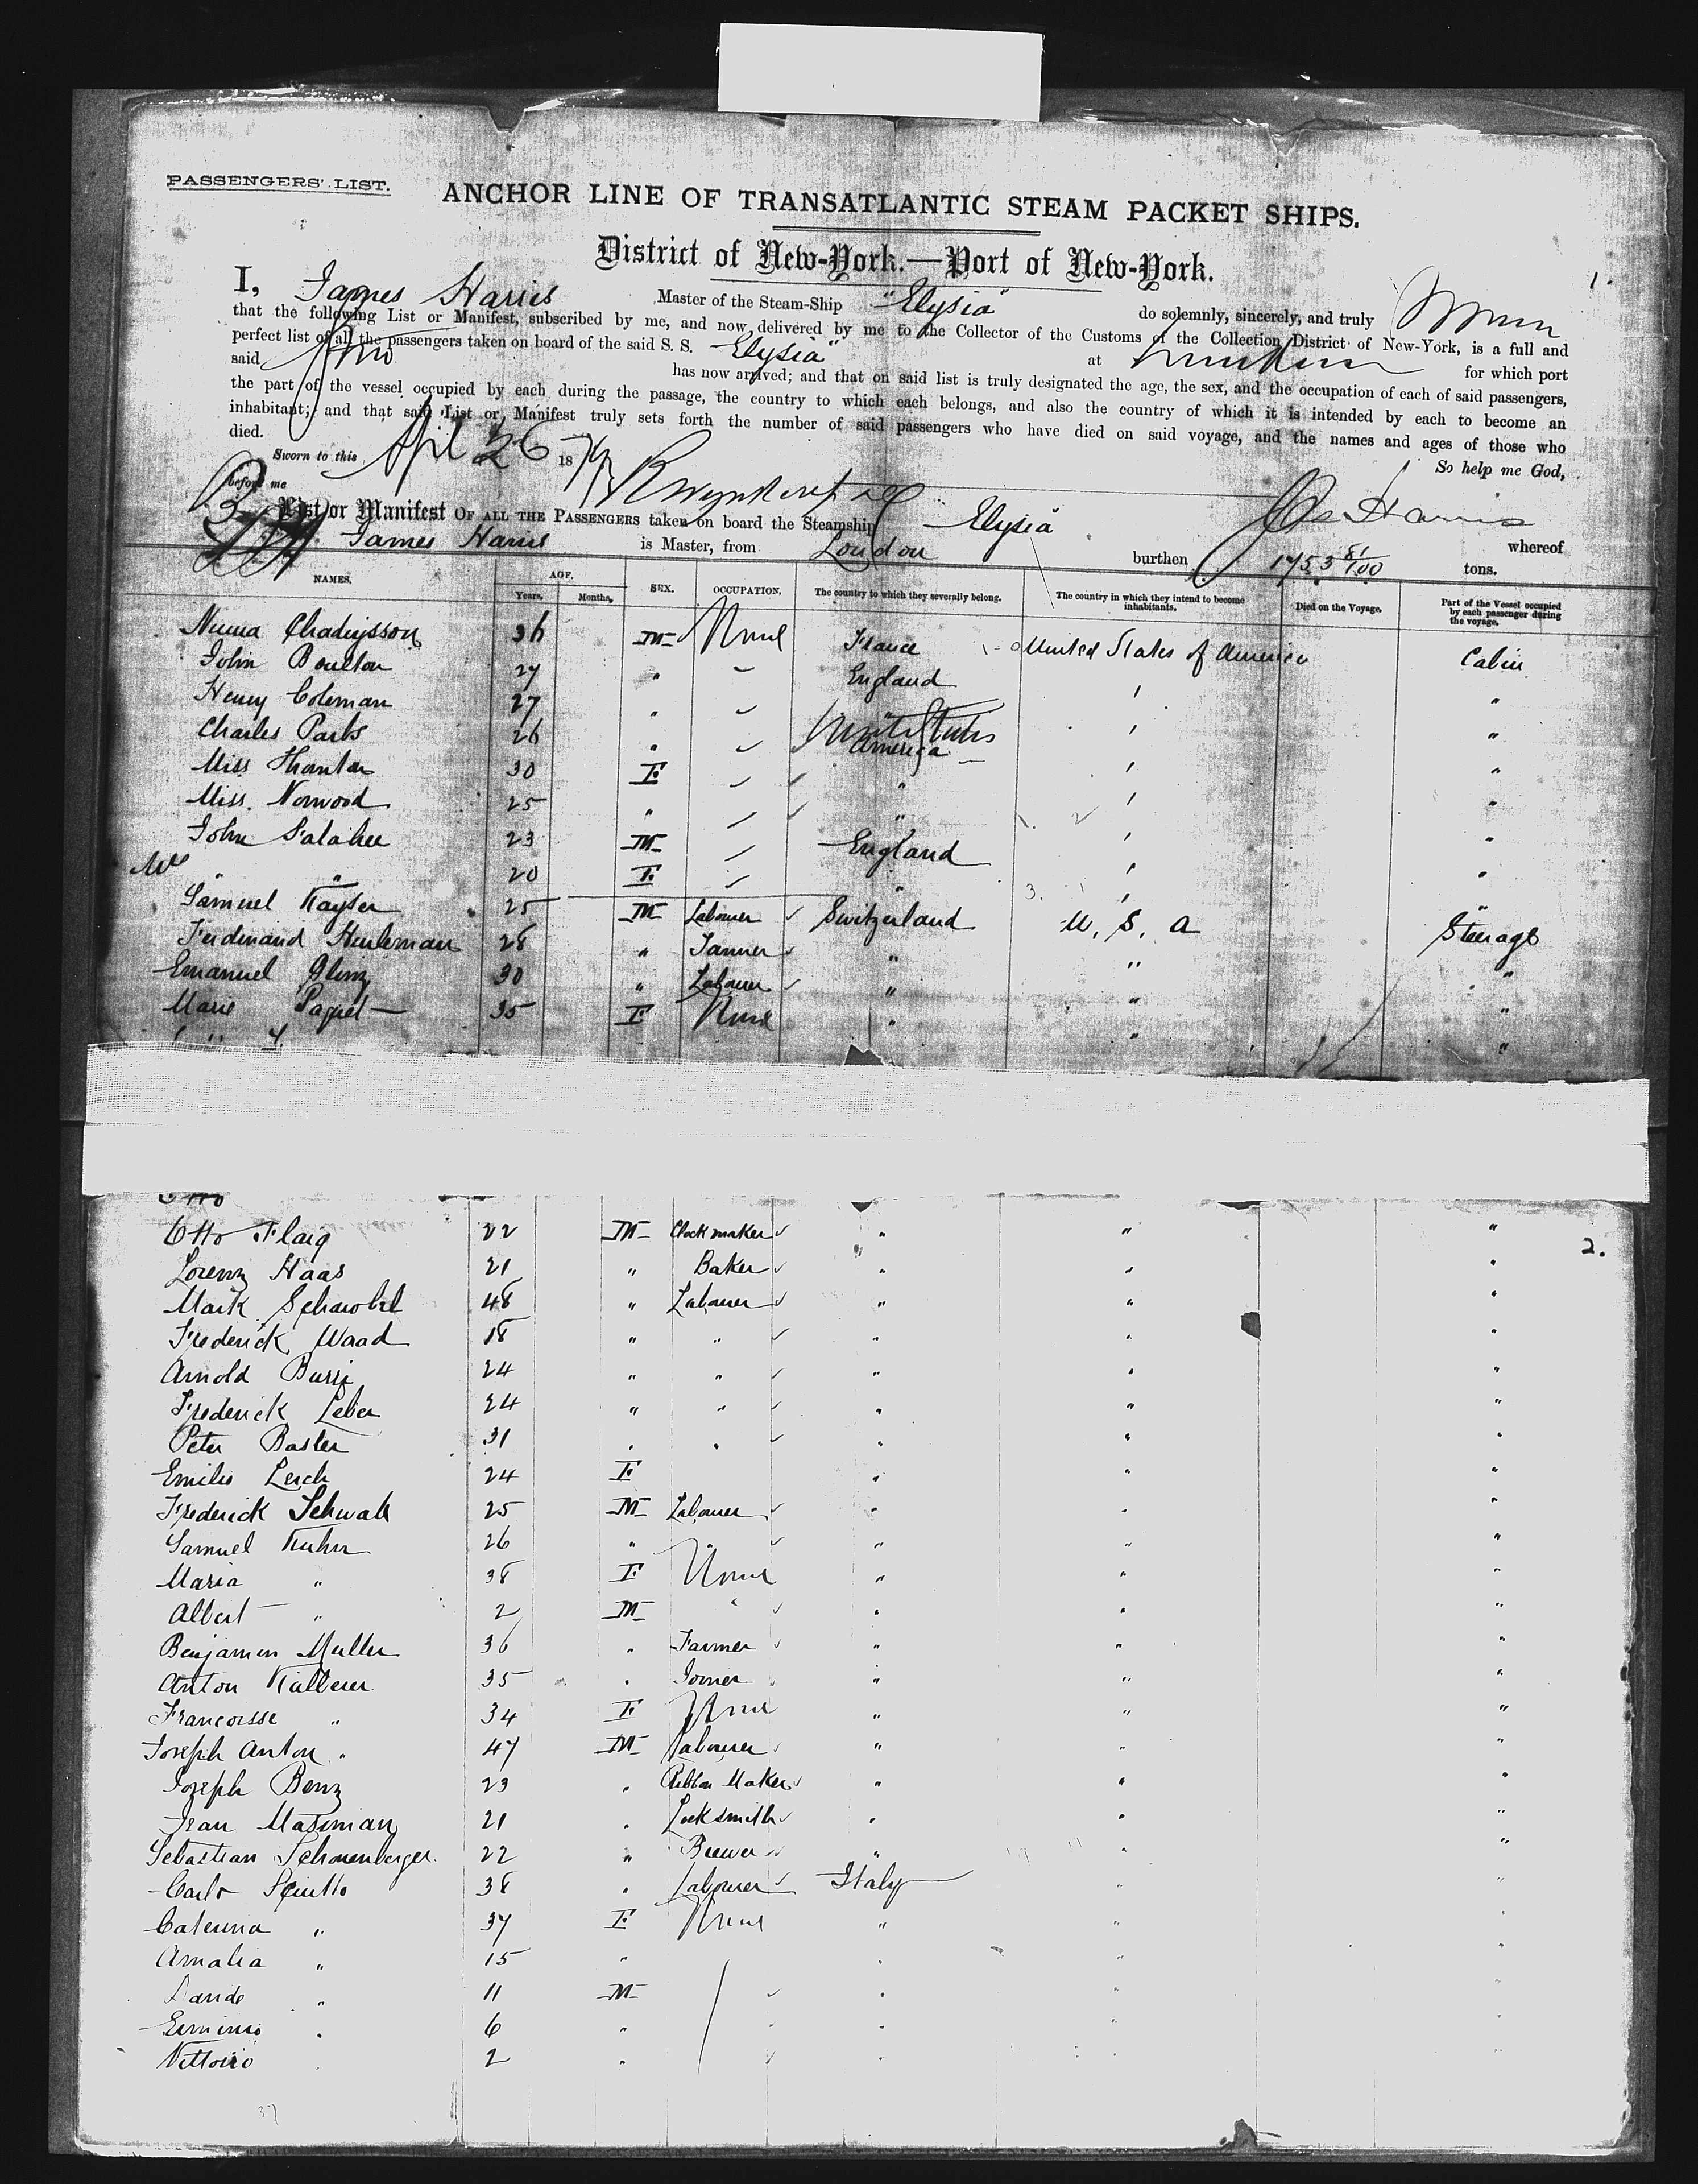 PASSENGERS' LIST.
1.
ANCHOR LINE OF TRANSATLANTIC STEAM PACKET SHIPS.
District of New-York.—Port of New-York.
I, James Harris Master of the Steam-Ship "Elysia" do solemnly, sincerely, and truly
that the following List or Manifest, subscribed by me, and now delivered by me to the Collector of the Customs of the Collection District of New-York, is a full and
perfect list of all the passengers taken on board of the said S. S. "Elysia" at for which port
said has now arrived; and that on said list is truly designated the age, the sex, and the occupation of each of said passengers,
the part of the vessel occupied by each during the passage, the country to which each belongs, and also the country of which it is intended by each to become an
inhabitant; and that said List or Manifest truly sets forth the number of said passengers who have died on said voyage, and the names and ages of those who
died.
So help me God,
Sworn to this Apl 26 18
before me
Jas Harris
List or Manifest OF ALL THE PASSENGERS taken on board the Steamship Elysia whereof
James Harris is Master, from London burthen 1753 81/100 tons.
NAMES. AGE. Years. Months. SEX. OCCUPATION. The country to which they severally belong. The country in which they intend to become inhabitants. Died on the Voyage. Part of the Vessel occupied by each passenger during the voyage.
36 M None France United States of America Cabin
John Boulton 27 " England " "
Henry Coleman 27 " " "
Charles Parks 26 " United States America " "
Miss 30 F " " "
Miss. Norwood 25 " " " "
John 23 M England " "
" " 20 F " " "
Samuel Kayser 25 M Labourer Switzerland U. S. A Steerage
Ferdinand 28 " Tanner " " "
Emanuel 30 " Labourer " " "
Marie Paquet 35 F None " " "
2.
Otto Flaig 22 M Clockmaker " " "
Lorenz Haas 21 " Baker " " "
Mark 48 " Labourer " " "
Frederick Waad 18 " " " " "
Arnold Burri 24 " " " " "
Frederick Leber 24 " " " " "
Peter Basler 31 " " " " "
Emilie Lerch 24 F " " "
Frederick Schwab 25 M Labourer " " "
Samuel Kuhn 26 " " " " "
Maria " 38 F None " " "
Albert " 2 M " " " "
Benjamin Muller 36 " Farmer " " "
Anton 35 " Joiner " " "
Francoisse " 34 F None " " "
Joseph Anton " 47 M Labourer " " "
Joseph Benz 23 " Ribbon Maker " " "
Jean 21 " Locksmith " " "
Sebastian Schonenberger 22 " Brewer " " "
Carlo 38 " Labourer Italy " "
Caterina " 37 F None " " "
Amalia " 15 " " " "
" 11 M " " "
" 6 " " " "
Vittorio 2 " " " "
37